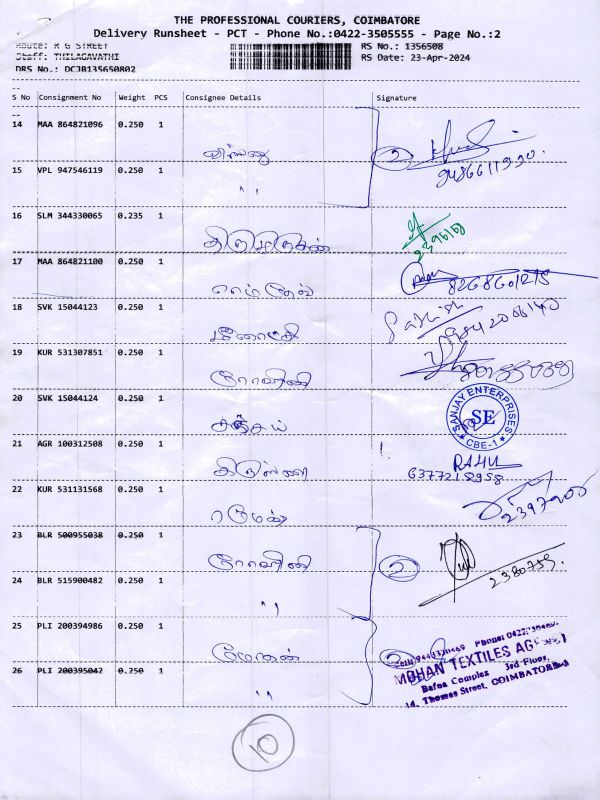 THE PROFESSIONAL COURIERS, COIMBATORE
Delivery Runsheet - PCT - Phone No.:0422-3505555 - Page No.:2
Route: R G STREET
RS No.: 1356508
Staff: THILAGAVATHI
RS Date: 23-Apr-2024
DRS No.: DCJB135650802
S No Consignment No Weight PCS Consignee Details Signature
14 MAA 864821096 0.250 1
விஷ்ணு
2
15 VPL 947546119 0.250 1
" 
16 SLM 344330065 0.235 1
திருமுருகன்
17 MAA 864821100 0.250 1
8268601215
18 SVK 15044123 0.250 1
மீனாட்சி
19 KUR 531307851 0.250 1
ரோஹிணி
20 SVK 15044124 0.250 1
சஞ்சய்
SANJAY ENTERPRISES
SE
CBE-1
21 AGR 100312508 0.250 1
கிருஷ்ணா
RAHU
6377218958
22 KUR 531131568 0.250 1
ரமேஷ்
2397200
23 BLR 500955038 0.250 1
ரோஹிணி
2
24 BLR 515900482 0.250 1
"
2380759.
25 PLI 200394986 0.250 1
மோகன்
2
MOHAN TEXTILES
Bafna Complex 3rd Floor,
14, Thomas Street, COIMBATORE-1
26 PLI 200395042 0.250 1
"
10